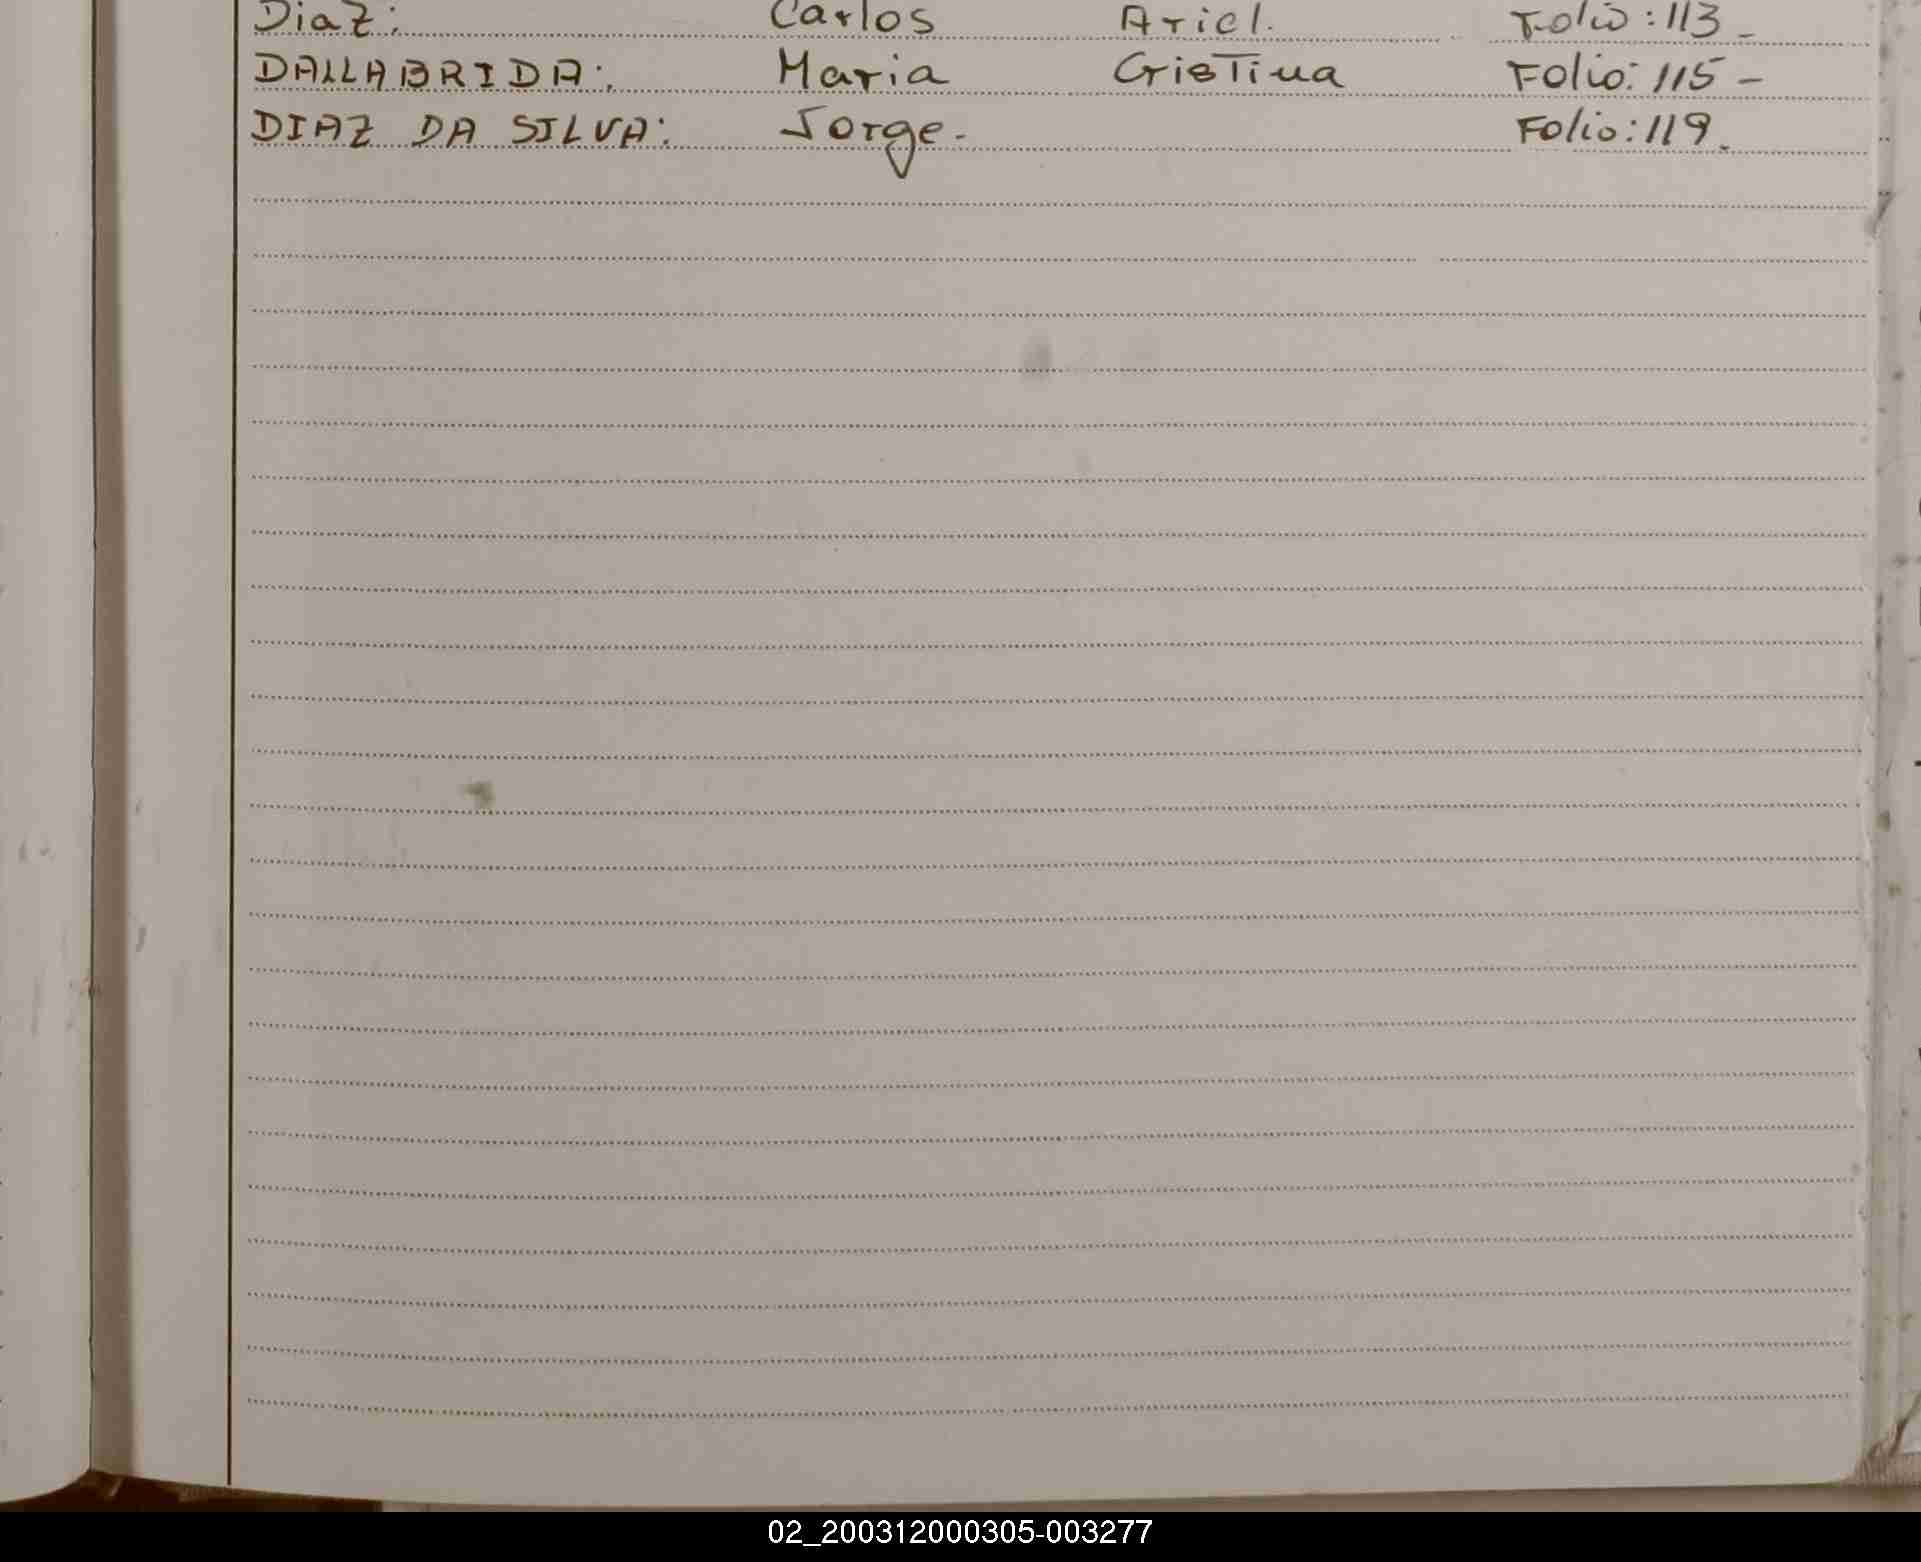 Diaz: Carlos Ariel. Folio: 113 -
DALLABRIDA: Maria Cristina Folio: 115 -
DIAZ DA SILVA: Jorge - Folio: 119.
02_200312000305-003277